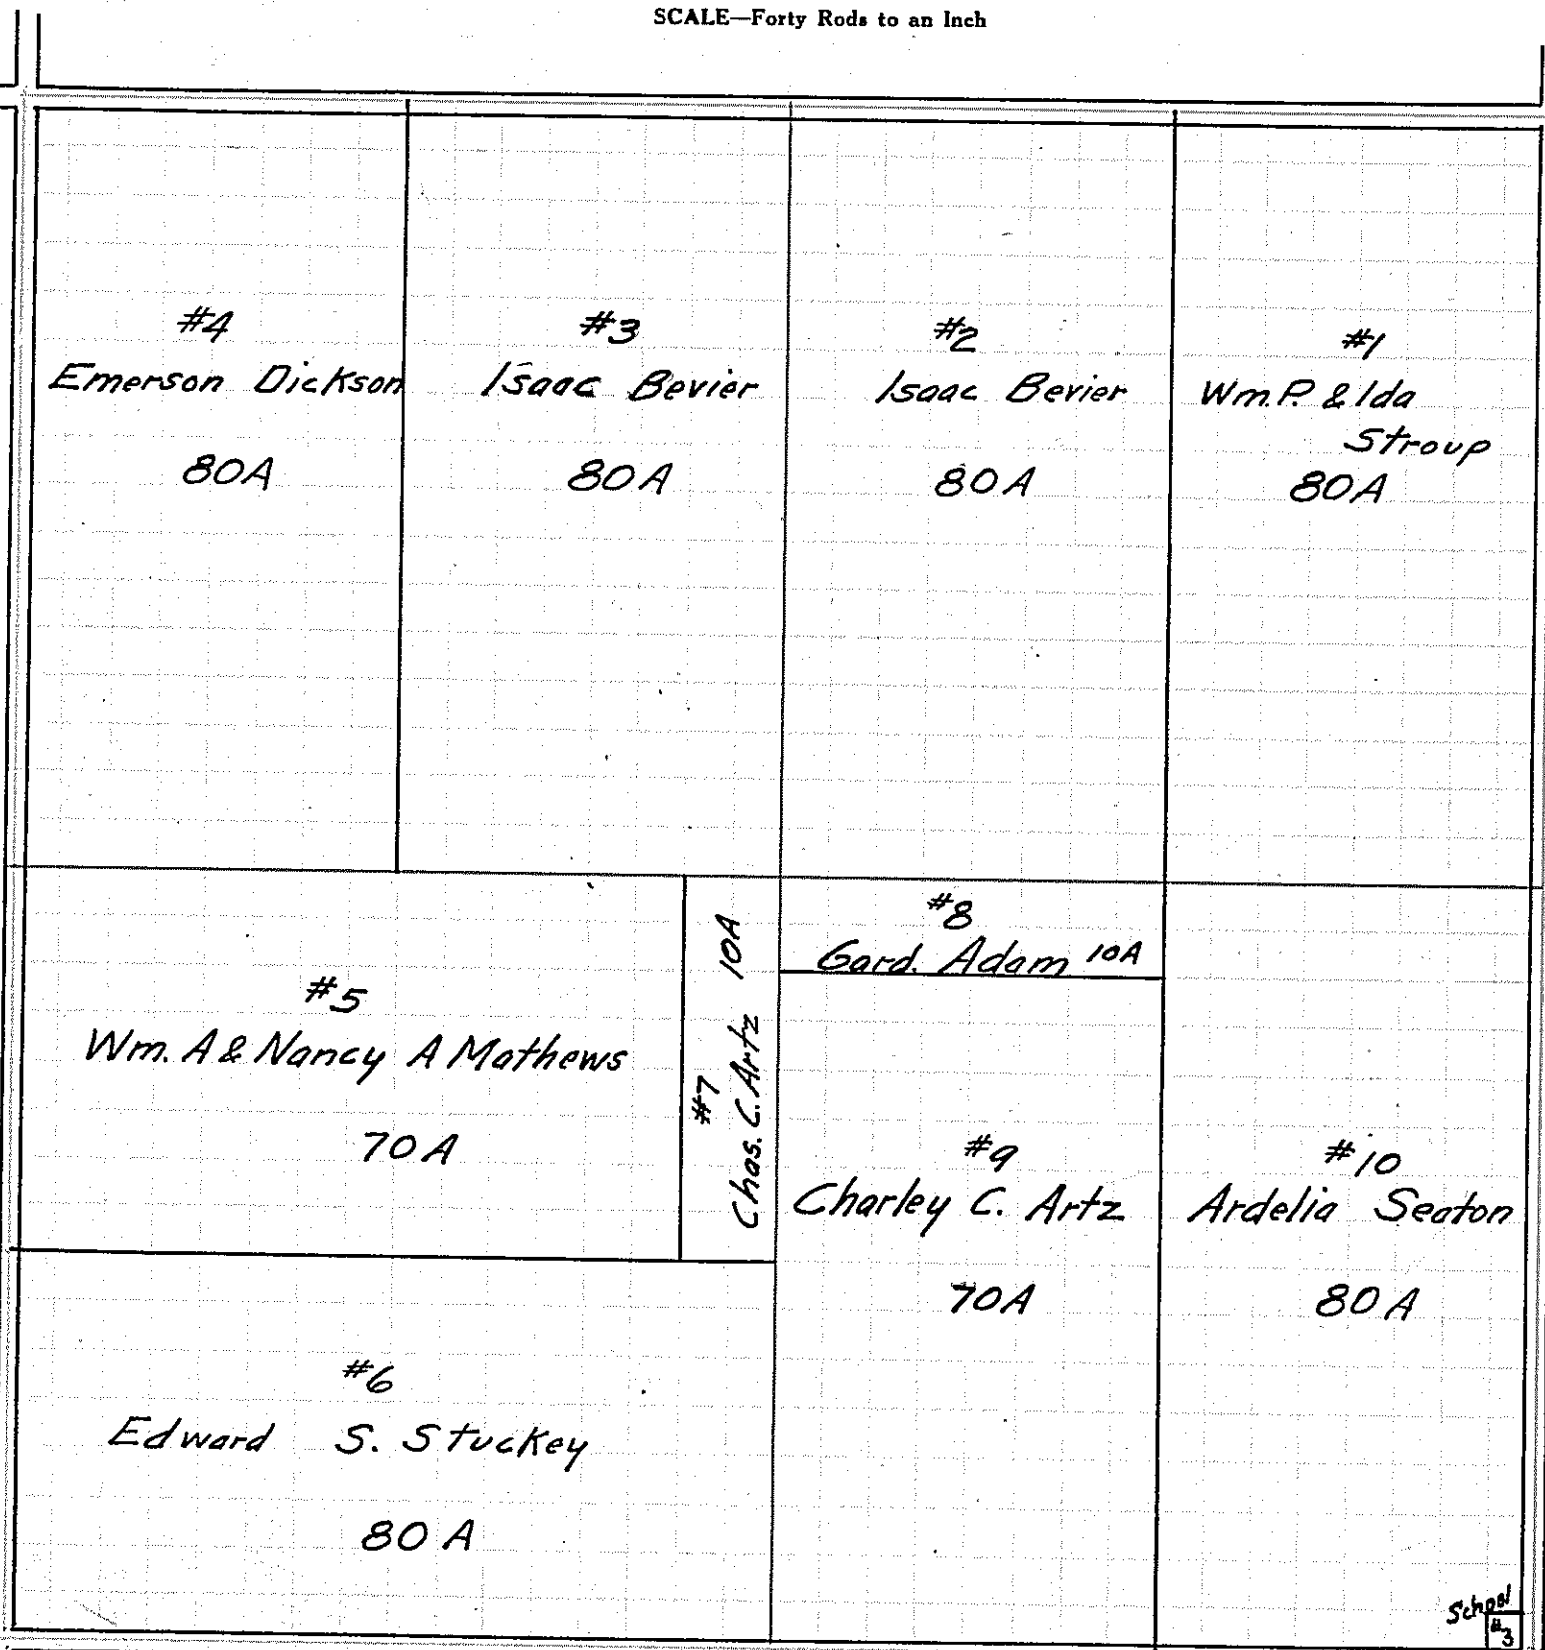 SCALE—Forty Rods to an Inch
#4
Emerson Dickson
80A
#3
Isaac Bevier
80A
#2
Isaac Bevier
80A
#1
Wm. P. & Ida
Stroup
80A
#5
Wm. A & Nancy A Mathews
70A
#7
Chas. C. Artz 10A
#8
Gard. Adam 10A
#9
Charley C. Artz
70A
#10
Ardelia Seaton
80A
#6
Edward S. Stuckey
80 A
School
#3